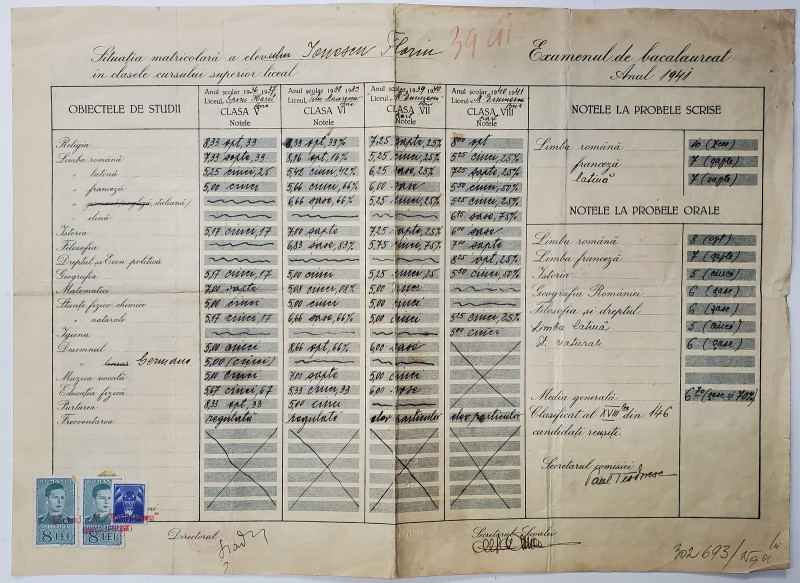 39 VII
Situația matricolară a elevului Ionescu Florin
în clasele cursului superior liceal
Examenul de bacalaureat
Anul 1941
OBIECTELE DE STUDII
Anul școlar 1936 1937
Liceul Spiru Haret
CLASA V
Notele
Anul școlar 1938 1939
Liceul Titu Maiorescu
CLASA VI
Notele
Anul școlar 1939 1940
Liceul M. Eminescu
CLASA VII
Notele
Anul școlar 1940 1941
Liceul M. Eminescu
CLASA VIII
Notele
NOTELE LA PROBELE SCRISE
Religia 8,33 opt, 33 8,33 opt, 33% 7,25 șapte, 25% 8,00 opt
Limba română 7,33 șapte, 33 8,16 opt, 16% 5,25 cinci, 25% 5,25 cinci, 25%
" latină 5,25 cinci, 25 5,42 cinci, 42% 6,25 șase, 25% 7,25 șapte, 25%
" franceză 5,00 cinci 5,66 cinci, 66% 6,00 șase 5,50 cinci, 50%
" germană (engleză, italiană) 6,66 șase, 66% 5,25 cinci, 25% 5,25 cinci, 25%
" elină 6,75 șase, 75%
Istoria 5,17 cinci, 17 7,00 șapte 7,25 șapte, 25% 6,00 șase
Filosofia 6,83 șase, 83% 5,75 cinci, 75% 7,00 șapte
Dreptul și Econ. politică 8,25 opt, 25%
Geografia 5,17 cinci, 17 5,00 cinci 5,25 cinci, 25 5,50 cinci, 50%
Matematici 7,00 șapte 5,08 cinci, 08% 5,00 cinci
Științe fizico chimice 5,00 cinci 5,00 cinci 5,00 cinci
" naturale 5,17 cinci, 17 6,66 șase, 66% 5,00 cinci 5,25 cinci, 25%
Igiena 5,00 cinci
Desemnul 5,00 cinci 8,66 opt, 66% 6,00 șase
" Germana 5,00 (cinci)
Muzica vocală 5,00 cinci 7,00 șapte 5,00 cinci
Educația fizică 5,67 cinci, 67 5,33 cinci, 33 6,00 șase
Purtarea 8,33 opt, 33 5,00 cinci
Frecventarea regulată regulată elev particular elev particular
Limba română 10 (zece)
franceză 7 (șapte)
latină 7 (șapte)
NOTELE LA PROBELE ORALE
Limba română 8 (opt)
Limba franceză 7 (șapte)
Istoria 5 (cinci)
Geografia României 6 (șase)
Filosofia și dreptul 6 (șase)
Limba latină 5 (cinci)
Șt. naturale 6 (șase)
Media generală 6,70 (șase și 70%)
Clasificat al XVIII lea din 146
candidați reușiți.
Secretarul comisiei
Paul Teodorescu
ROMANIA
8 LEI
ROMANIA
8 LEI
Directorul
Secretarul Școalei
302693/